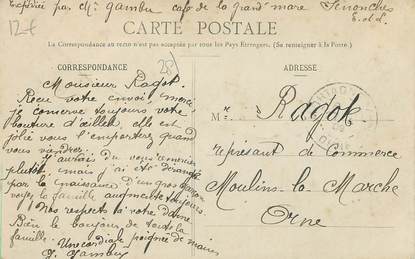 Expédiée par Mr Gambu café de la grand mare Senonches
E-et-L.
12f
CARTE POSTALE
La Correspondance au recto n'est pas acceptée par tous les Pays Etrangers. (Se renseigner à la Poste.)
CORRESPONDANCE
28
Monsieur Ragot.
Reçu votre envoi, merci,
je conserve toujours votre
bouture d'œillet, elle est
jolie vous l'emporterez quand
vous viendrez.
J'aurais du vous remercier
plutôt, mais j'ai été dérangé
par la naissance d'un gros garçon
voyez la famille augmente toujours.
Nos respects à votre dame.
Bien le bonjour de toute la
famille.
Une cordiale poignée de mains
J. Gambu
ADRESSE
M. r Ragot
représentant de Commerce
Moulins-la-Marche
Orne